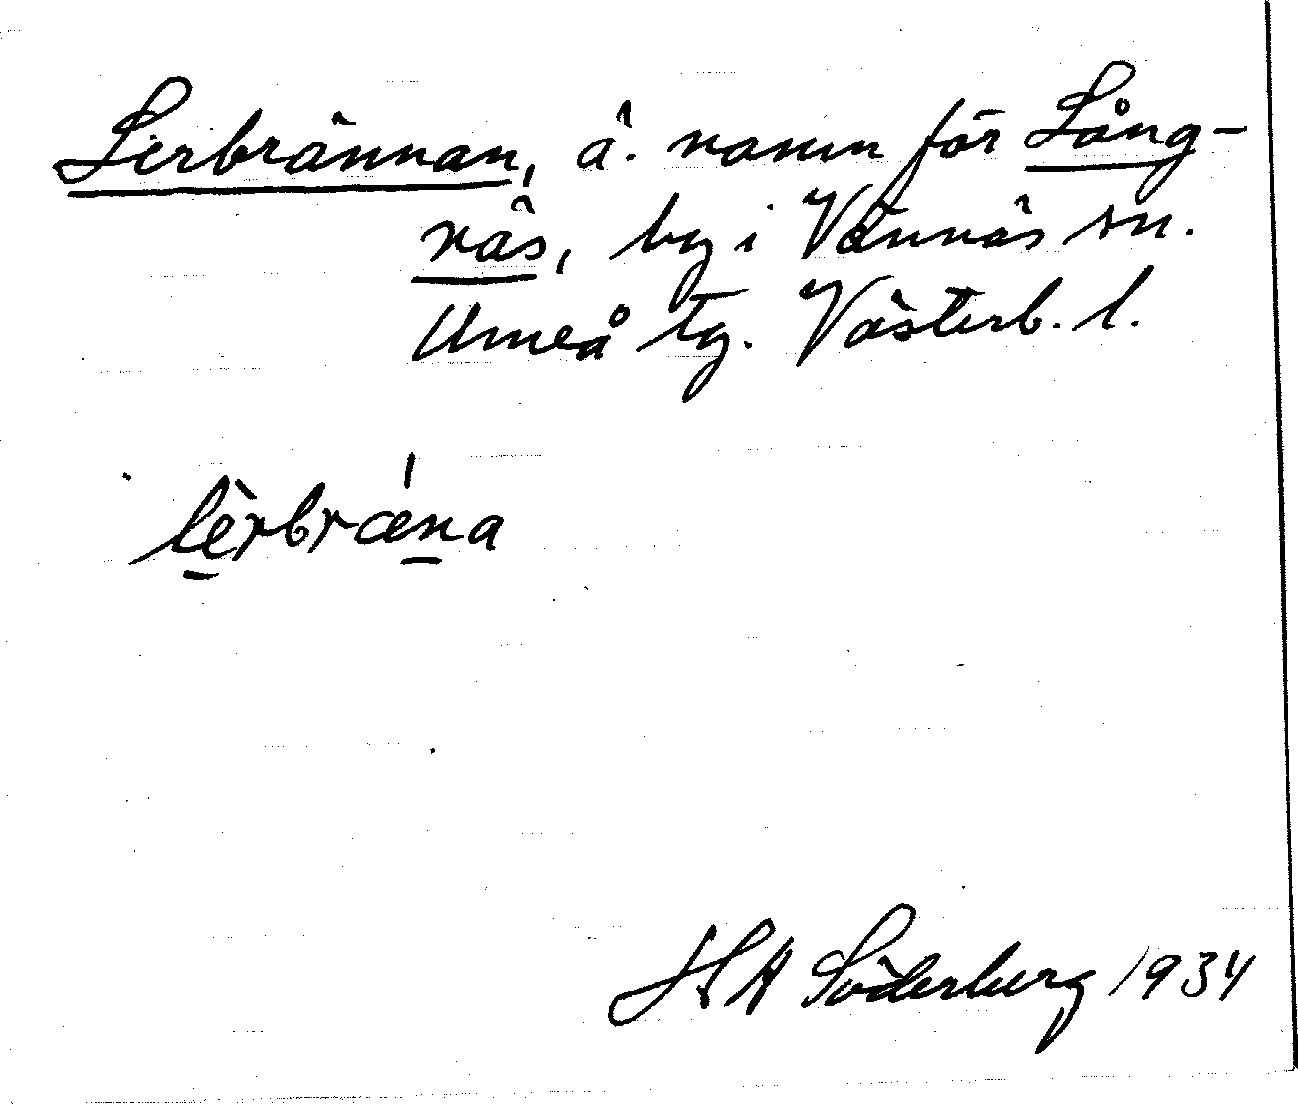 Lerbrännan, ä. namn för Lång-
näs, by i Vännäs sn.
Umeå tg. Västerb. l.
lèrbrǽna
H A Söderberg 1934